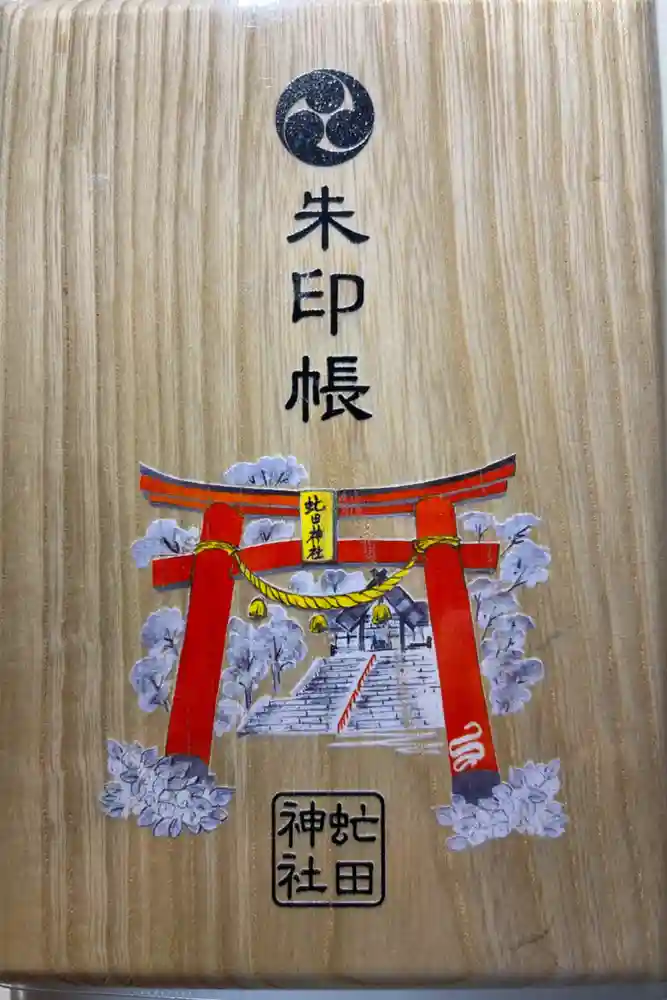 朱印帳
虻田神社
虻田
神社